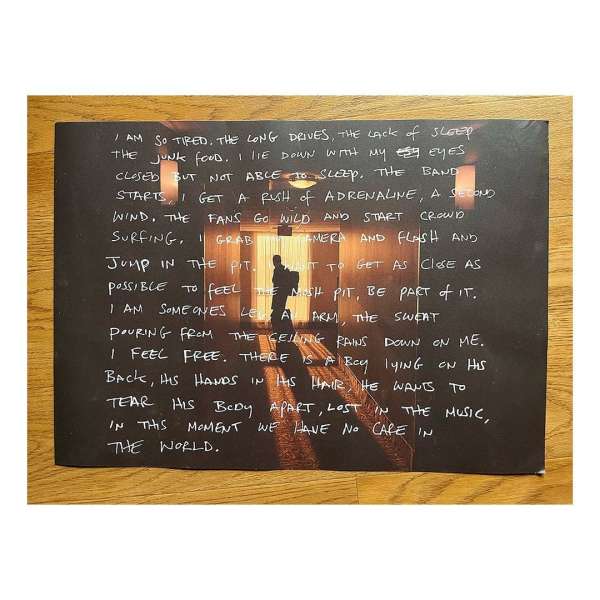 I AM SO TIRED. THE LONG DRIVES, THE LACK OF SLEEP
THE JUNK FOOD. I LIE DOWN WITH MY EYES
CLOSED BUT NOT ABLE TO SLEEP. THE BAND
STARTS, I GET A RUSH OF ADRENALINE, A SECOND
WIND. THE FANS GO WILD AND START CROWD
SURFING. I GRAB CAMERA AND FLASH AND
JUMP IN THE PIT. I WANT TO GET AS CLOSE AS
POSSIBLE TO FEEL THE MOSH PIT, BE PART OF IT.
I AM SOMEONES LEG AN ARM, THE SWEAT
POURING FROM THE CEILING RAINS DOWN ON ME.
I FEEL FREE. THERE IS A BOY LYING ON HIS
BACK, HIS HANDS IN HIS HAIR, HE WANTS TO
TEAR HIS BODY APART, LOST IN THE MUSIC,
IN THIS MOMENT WE HAVE NO CARE IN
THE WORLD.